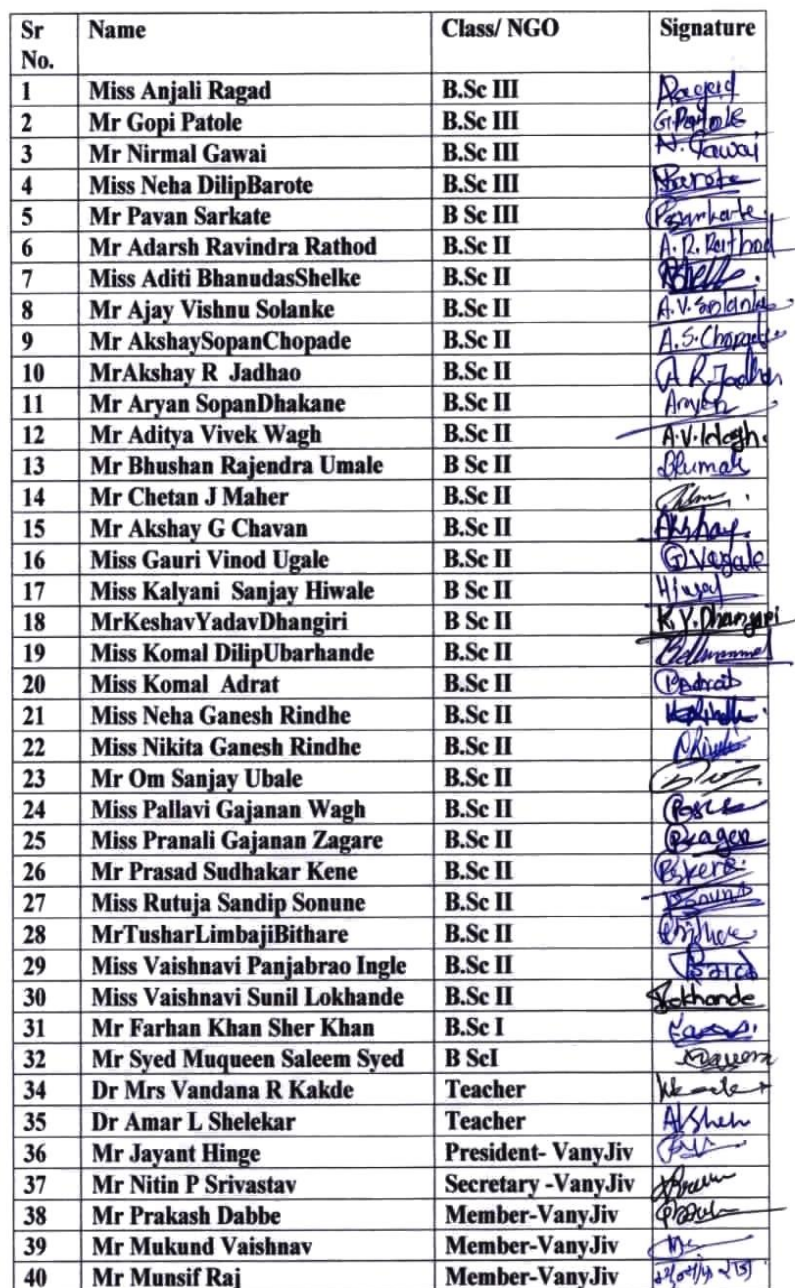 Sr No. Name Class/ NGO Signature
1 Miss Anjali Ragad B.Sc III
2 Mr Gopi Patole B.Sc III G.Patole
3 Mr Nirmal Gawai B.Sc III N. Gawai
4 Miss Neha DilipBarote B.Sc III NBarote
5 Mr Pavan Sarkate B Sc III
6 Mr Adarsh Ravindra Rathod B.Sc II A. R. Rathod
7 Miss Aditi BhanudasShelke B.Sc II
8 Mr Ajay Vishnu Solanke B.Sc II A.V. Solanke
9 Mr AkshaySopanChopade B.Sc II A.S.Chopade
10 MrAkshay R Jadhao B.Sc II A R. Jadhao
11 Mr Aryan SopanDhakane B.Sc II Aryan
12 Mr Aditya Vivek Wagh B.Sc II A.V.Wagh.
13 Mr Bhushan Rajendra Umale B Sc II
14 Mr Chetan J Maher B.Sc II
15 Mr Akshay G Chavan B.Sc II Akshay.
16 Miss Gauri Vinod Ugale B.Sc II
17 Miss Kalyani Sanjay Hiwale B Sc II
18 MrKeshavYadavDhangiri B Sc II K.Y.Dhangari
19 Miss Komal DilipUbarhande B.Sc II
20 Miss Komal Adrat B.Sc II
21 Miss Neha Ganesh Rindhe B.Sc II
22 Miss Nikita Ganesh Rindhe B.Sc II
23 Mr Om Sanjay Ubale B.Sc II
24 Miss Pallavi Gajanan Wagh B.Sc II
25 Miss Pranali Gajanan Zagare B.Sc II
26 Mr Prasad Sudhakar Kene B.Sc II
27 Miss Rutuja Sandip Sonune B.Sc II
28 MrTusharLimbajiBithare B.Sc II
29 Miss Vaishnavi Panjabrao Ingle B.Sc II
30 Miss Vaishnavi Sunil Lokhande B.Sc II Lokhande
31 Mr Farhan Khan Sher Khan B.Sc I
32 Mr Syed Muqueen Saleem Syed B ScI
34 Dr Mrs Vandana R Kakde Teacher
35 Dr Amar L Shelekar Teacher
36 Mr Jayant Hinge President- VanyJiv
37 Mr Nitin P Srivastav Secretary -VanyJiv
38 Mr Prakash Dabbe Member-VanyJiv
39 Mr Mukund Vaishnav Member-VanyJiv
40 Mr Munsif Raj Member-VanyJiv